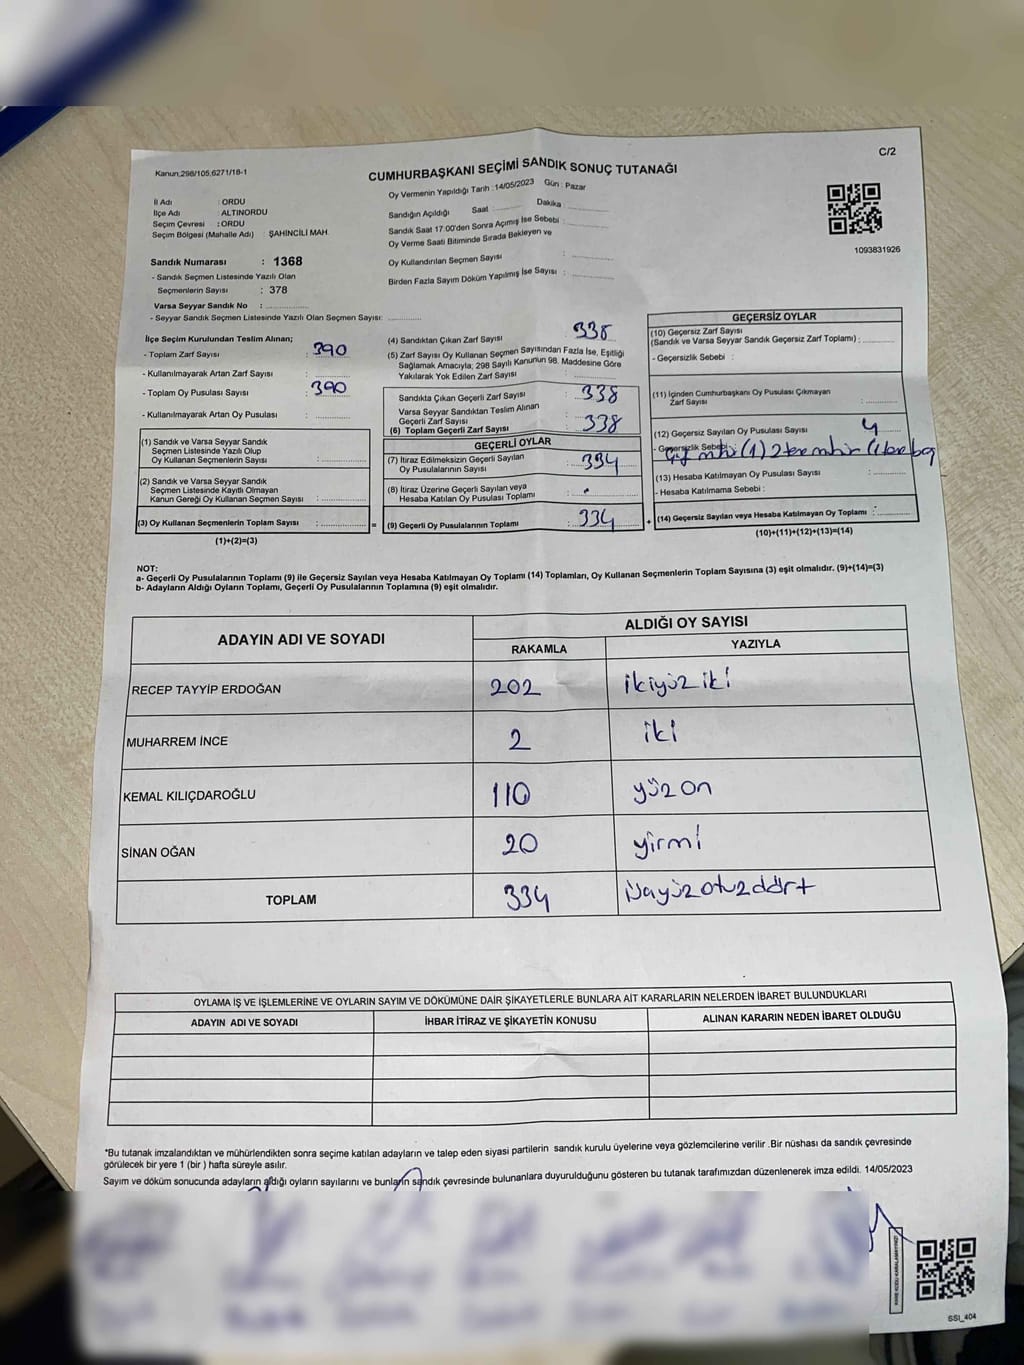 C/2
Kanun,298/105,6271/18-1
CUMHURBAŞKANI SEÇİMİ SANDIK SONUÇ TUTANAĞI
Oy Vermenin Yapıldığı Tarih :14/05/2023 Gün : Pazar
İl Adı : ORDU
İlçe Adı : ALTINORDU
Seçim Çevresi : ORDU
Seçim Bölgesi (Mahalle Adı) : ŞAHİNCİLİ MAH.
Sandık Numarası : 1368
- Sandık Seçmen Listesinde Yazılı Olan
Seçmenlerin Sayısı : 378
Varsa Seyyar Sandık No : ............
- Seyyar Sandık Seçmen Listesinde Yazılı Olan Seçmen Sayısı: ............
Sandığın Açıldığı Saat ............ Dakika ............
Sandık Saat 17:00'den Sonra Açımış İse Sebebi : ............
Oy Verme Saati Bitiminde Sırada Bekleyen ve
Oy Kullandırılan Seçmen Sayısı : ............
Birden Fazla Sayım Döküm Yapılmış İse Sayısı : ............
1093831926
İlçe Seçim Kurulundan Teslim Alınan;
- Toplam Zarf Sayısı : 390
- Kullanılmayarak Artan Zarf Sayısı : ............
- Toplam Oy Pusulası Sayısı : 390
- Kullanılmayarak Artan Oy Pusulası : ............
(1) Sandık ve Varsa Seyyar Sandık
Seçmen Listesinde Yazılı Olup
Oy Kullanan Seçmenlerin Sayısı : ............
(2) Sandık ve Varsa Seyyar Sandık
Seçmen Listesinde Kayıtlı Olmayan
Kanun Gereği Oy Kullanan Seçmen Sayısı : ............
(3) Oy Kullanan Seçmenlerin Toplam Sayısı : ............ =
(1)+(2)=(3)
(4) Sandıktan Çıkan Zarf Sayısı : 338
(5) Zarf Sayısı Oy Kullanan Seçmen Sayısından Fazla İse, Eşitliği
Sağlamak Amacıyla; 298 Sayılı Kanunun 98. Maddesine Göre
Yakılarak Yok Edilen Zarf Sayısı : ............
Sandıkta Çıkan Geçerli Zarf Sayısı : 338
Varsa Seyyar Sandıktan Teslim Alınan
Geçerli Zarf Sayısı
(6) Toplam Geçerli Zarf Sayısı : 338
GEÇERLİ OYLAR
(7) İtiraz Edilmeksizin Geçerli Sayılan
Oy Pusulalarının Sayısı : 334
(8) İtiraz Üzerine Geçerli Sayılan veya
Hesaba Katılan Oy Pusulası Toplamı : ............
(9) Geçerli Oy Pusulalarının Toplamı : 334 +
GEÇERSİZ OYLAR
(10) Geçersiz Zarf Sayısı
(Sandık ve Varsa Seyyar Sandık Geçersiz Zarf Toplamı) : ............
- Geçersizlik Sebebi :
(11) İçinden Cumhurbaşkanı Oy Pusulası Çıkmayan
Zarf Sayısı : ............
(12) Geçersiz Sayılan Oy Pusulası Sayısı : 4
- Geçersizlik Sebebi : mhür (1) 2
(13) Hesaba Katılmayan Oy Pusulası Sayısı : ............
- Hesaba Katılmama Sebebi :
(14) Geçersiz Sayılan veya Hesaba Katılmayan Oy Toplamı : ............
(10)+(11)+(12)+(13)=(14)
NOT:
a- Geçerli Oy Pusulalarının Toplamı (9) ile Geçersiz Sayılan veya Hesaba Katılmayan Oy Toplamı (14) Toplamları, Oy Kullanan Seçmenlerin Toplam Sayısına (3) eşit olmalıdır. (9)+(14)=(3)
b- Adayların Aldığı Oyların Toplamı, Geçerli Oy Pusulalarının Toplamına (9) eşit olmalıdır.
ADAYIN ADI VE SOYADI ALDIĞI OY SAYISI
RAKAMLA YAZIYLA
RECEP TAYYİP ERDOĞAN 202 ikiyüz iki
MUHARREM İNCE 2 iki
KEMAL KILIÇDAROĞLU 110 yüz on
SİNAN OĞAN 20 yirmi
TOPLAM 334 üçyüz otuz dört
OYLAMA İŞ VE İŞLEMLERİNE VE OYLARIN SAYIM VE DÖKÜMÜNE DAİR ŞİKAYETLERLE BUNLARA AİT KARARLARIN NELERDEN İBARET BULUNDUKLARI
ADAYIN ADI VE SOYADI İHBAR İTİRAZ VE ŞİKAYETİN KONUSU ALINAN KARARIN NEDEN İBARET OLDUĞU
*Bu tutanak imzalandıktan ve mühürlendikten sonra seçime katılan adayların ve talep eden siyasi partilerin sandık kurulu üyelerine veya gözlemcilerine verilir .Bir nüshası da sandık çevresinde
görülecek bir yere 1 (bir ) hafta süreyle asılır.
Sayım ve döküm sonucunda adayların aldığı oyların sayılarını ve bunların sandık çevresinde bulunanlara duyurulduğunu gösteren bu tutanak tarafımızdan düzenlenerek imza edildi. 14/05/2023
SSI_404